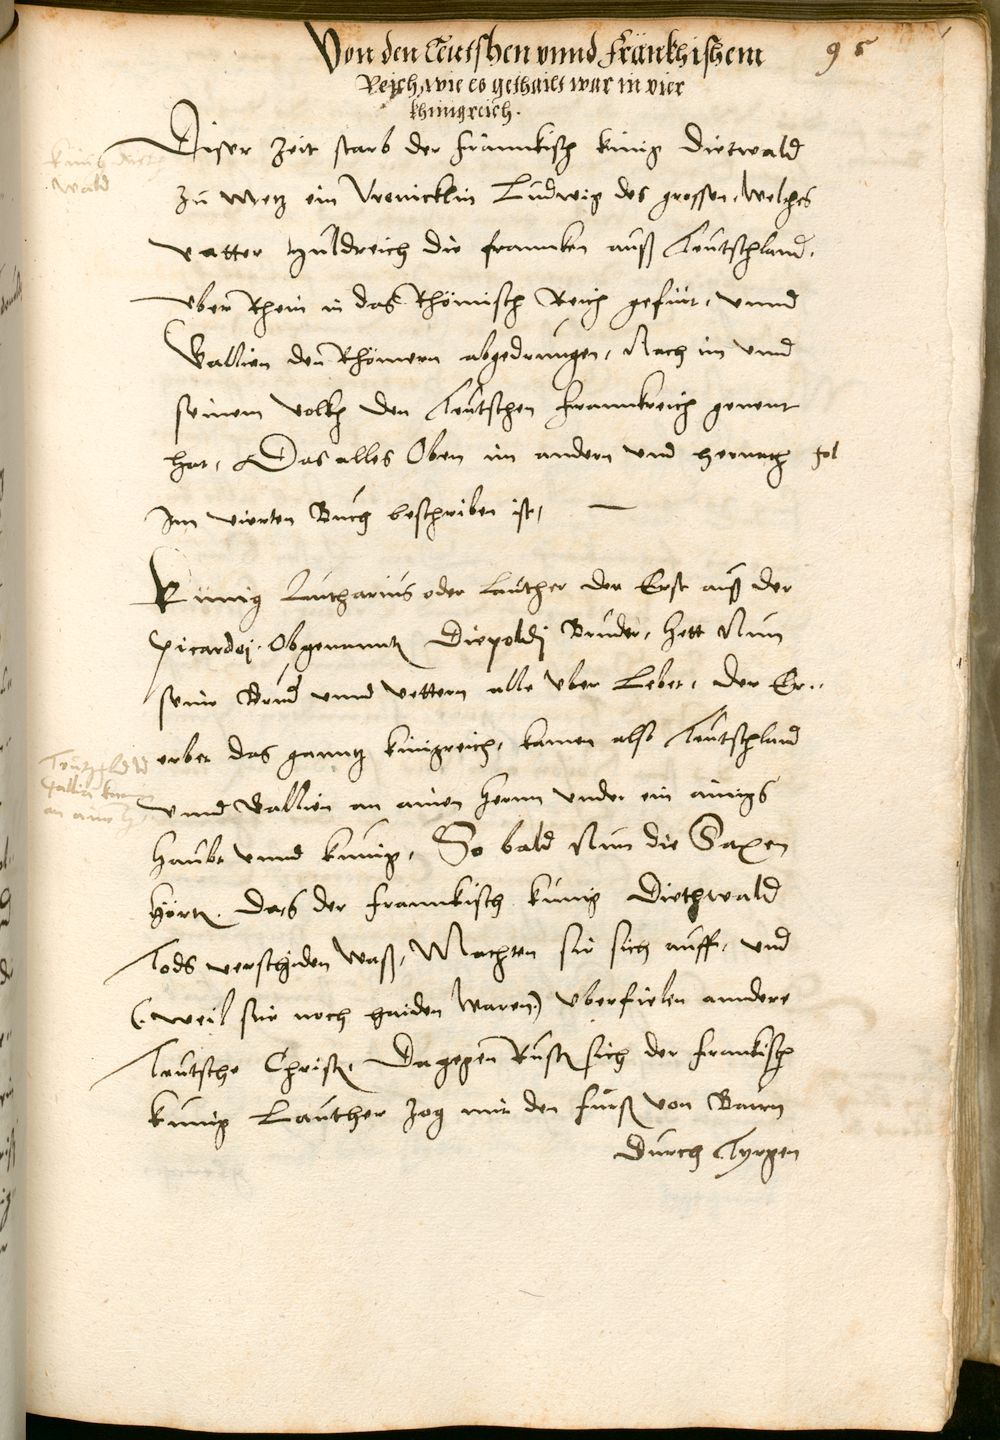 Von den Teutshen vnnd Fränkhishem
95
Reich, wie es gethailt war in vier
khinigreich.
künig Diet
wald
Diser Zeit starb der Frannkisch künig Dietwald
Zu Metz ein Vrenicklin Ludwig des grossen, Welches
vatter Huldreich die francken auß Teutschland,
vber Rhein in das Rhömisch Reich gefürt, vnnd
Gallien den Rhömern abgedrungen, Nach im vnnd
seinem volkh den Teutschen Frannkreich genent
hat, Das alles Oben im andern vnd hernach fol
Im vierten Buch beschriben ist,
Künig Lutharius oder Lauther der Erst auß der
Picardej. Obgenannts Diepoldj Bruder, Hett Nun
seine Brüd vnnd vettern alle vber Lebet, der Er,,
erbet das ganntz künigreich, kamen also Teutschland
Teutschland
Gallien komen
an ainen H.
vnnd Gallien an ainen Herrn vnder ein ainigs
Haubt vnnd künig, So bald Nun die Saxen
Hörtn, Das der Frannkisch künig Diethwald
Tods verschiden Waß, Machten sie sich auff, vnd
(: weil sie noch haiden Waren:) vberfielen anndere
Teutsche Christn, Dagegen Rust sich der Frankisch
künig Lauther Zog mit den fürstn von Bairn
Durch Tyrgen